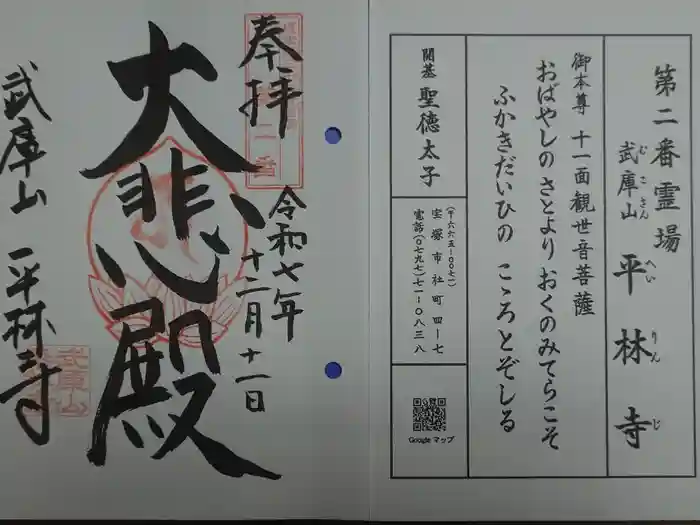 第二番霊場
武庫山 平林寺
むこさん へいりんじ
御本尊 十一面観世音菩薩
おばやしのさとより おくのみてらこそ
ふかきだいひの こゝろとぞしる
開基 聖徳太子
(〒六六五-〇〇七一)
宝塚市社町四-七
電話(〇七九七)七一-〇八三八
Google マップ
奉拝
令和七年
十二月十一日
大悲殿
武庫山 平林寺
武庫山